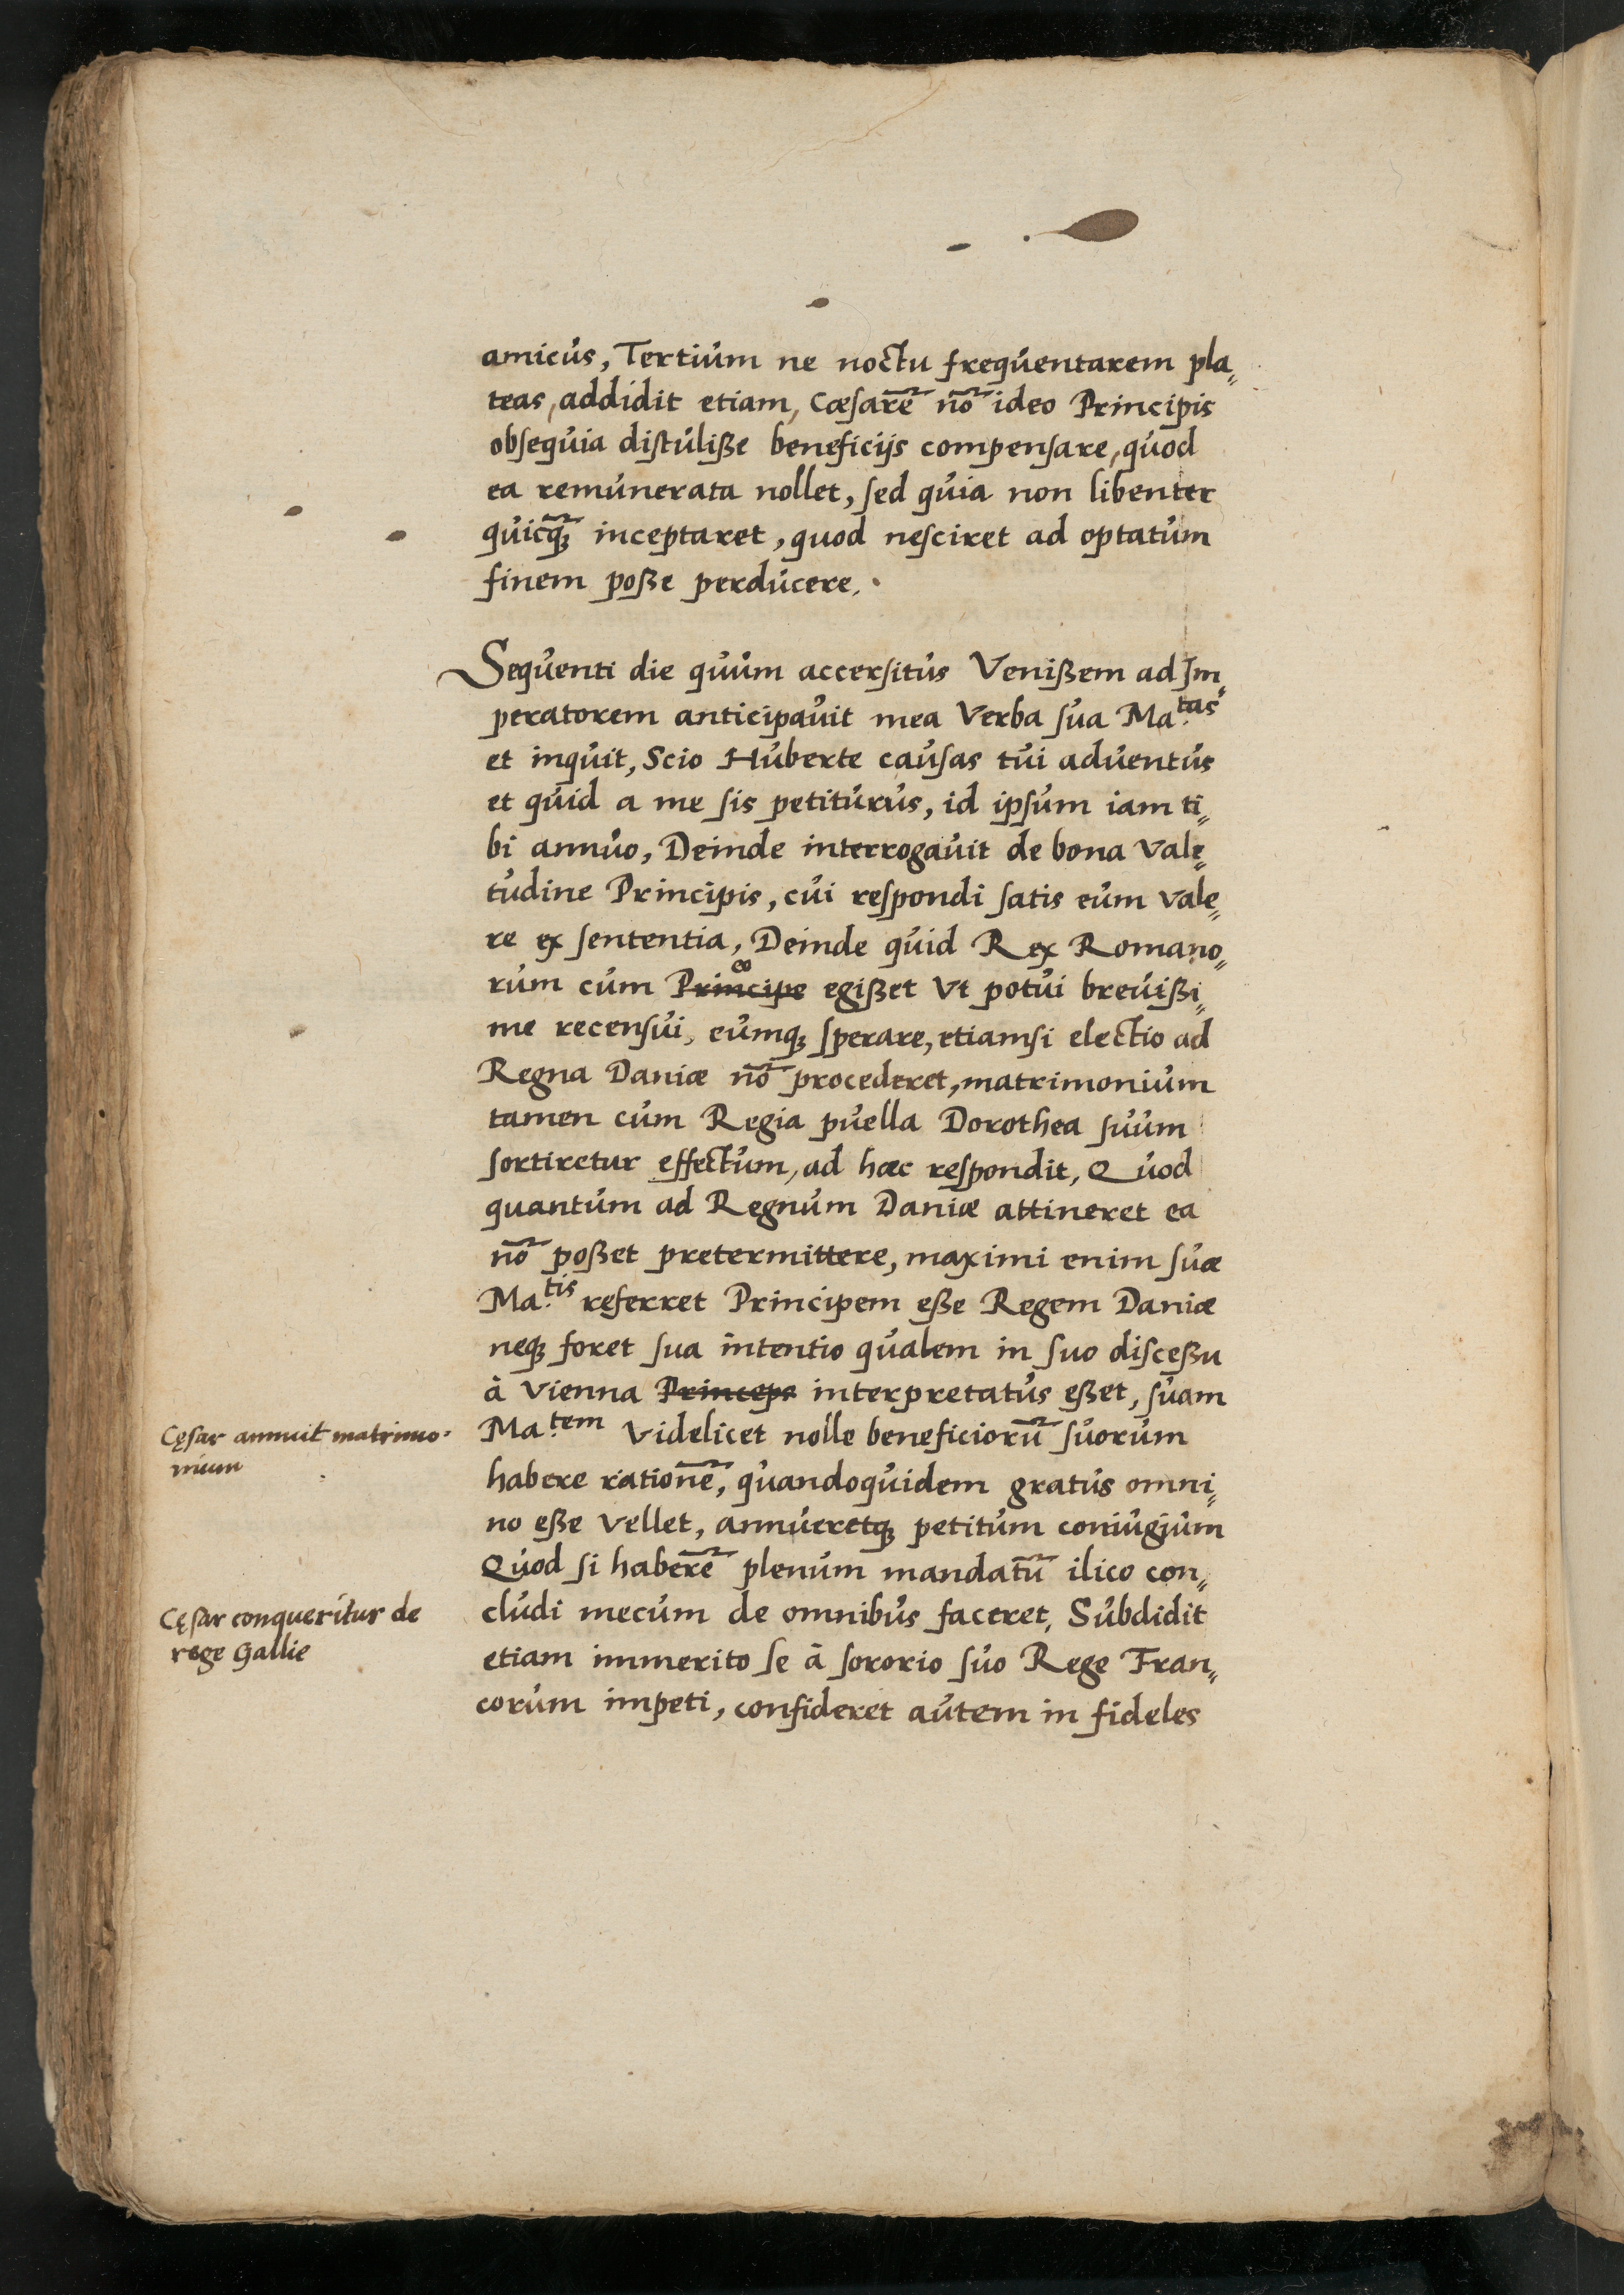 amicus, Tertium ne noctu frequentarem pla„
teas, addidit etiam, Cæſarē nō ideo Principis
obſequia diſtuliße beneficijs compenſare, quod
ea remunerata nollet, ſed quia non libenter
quicq̃ꝫ inceptaret, quod neſciret ad optatum
finem poße perducere.
Sequenti die quum accerſitus Venißem ad Im„
peratorem anticipauit mea Verba ſua Ma.tas
et inquit, Scio Huberte cauſas tui aduentus
et quid a me ſis petiturus, id ipſum iam ti„
bi annuo, Deinde interrogauit de bona Vale„
tudine Principis, cui reſpondi ſatis eum vale„
re ex ſententia, Deinde quid Rex Romano„
eo
rum cum Principe egißet Vt potui breuißi„
me recenſui, eumqꝫ ſperare, etiamsi electio ad
Regna Daniæ nō procederet, matrimonium
tamen cum Regia puella Dorothea ſuum
ſortiretur effectum, ad hæc reſpondit, Quod
quantum ad Regnum Daniæ attineret ea
nō poßet pretermittere, maximi enim ſuæ
Ma.tis referret Principem eße Regem Daniæ
neqꝫ foret ſua intentio qualem in ſuo diſceßu
à Vienna Princeps interpretatus eßet, ſuam
Cęſar annuit matrimo-
nium
Ma.tem Videlicet nolle beneficiorū ſuorum
habere rationē, quandoquidem gratus omni„
no eße Vellet, annueretqꝫ petitum coniugium
Quod ſi haberē plenum mandatū ilico con„
Cęſar conqueritur de
rege Gallie
cludi mecum de omnibus faceret, Subdidit
etiam immerito ſe à ſororio ſuo Rege Fran„
corum impeti, confideret autem in fideles